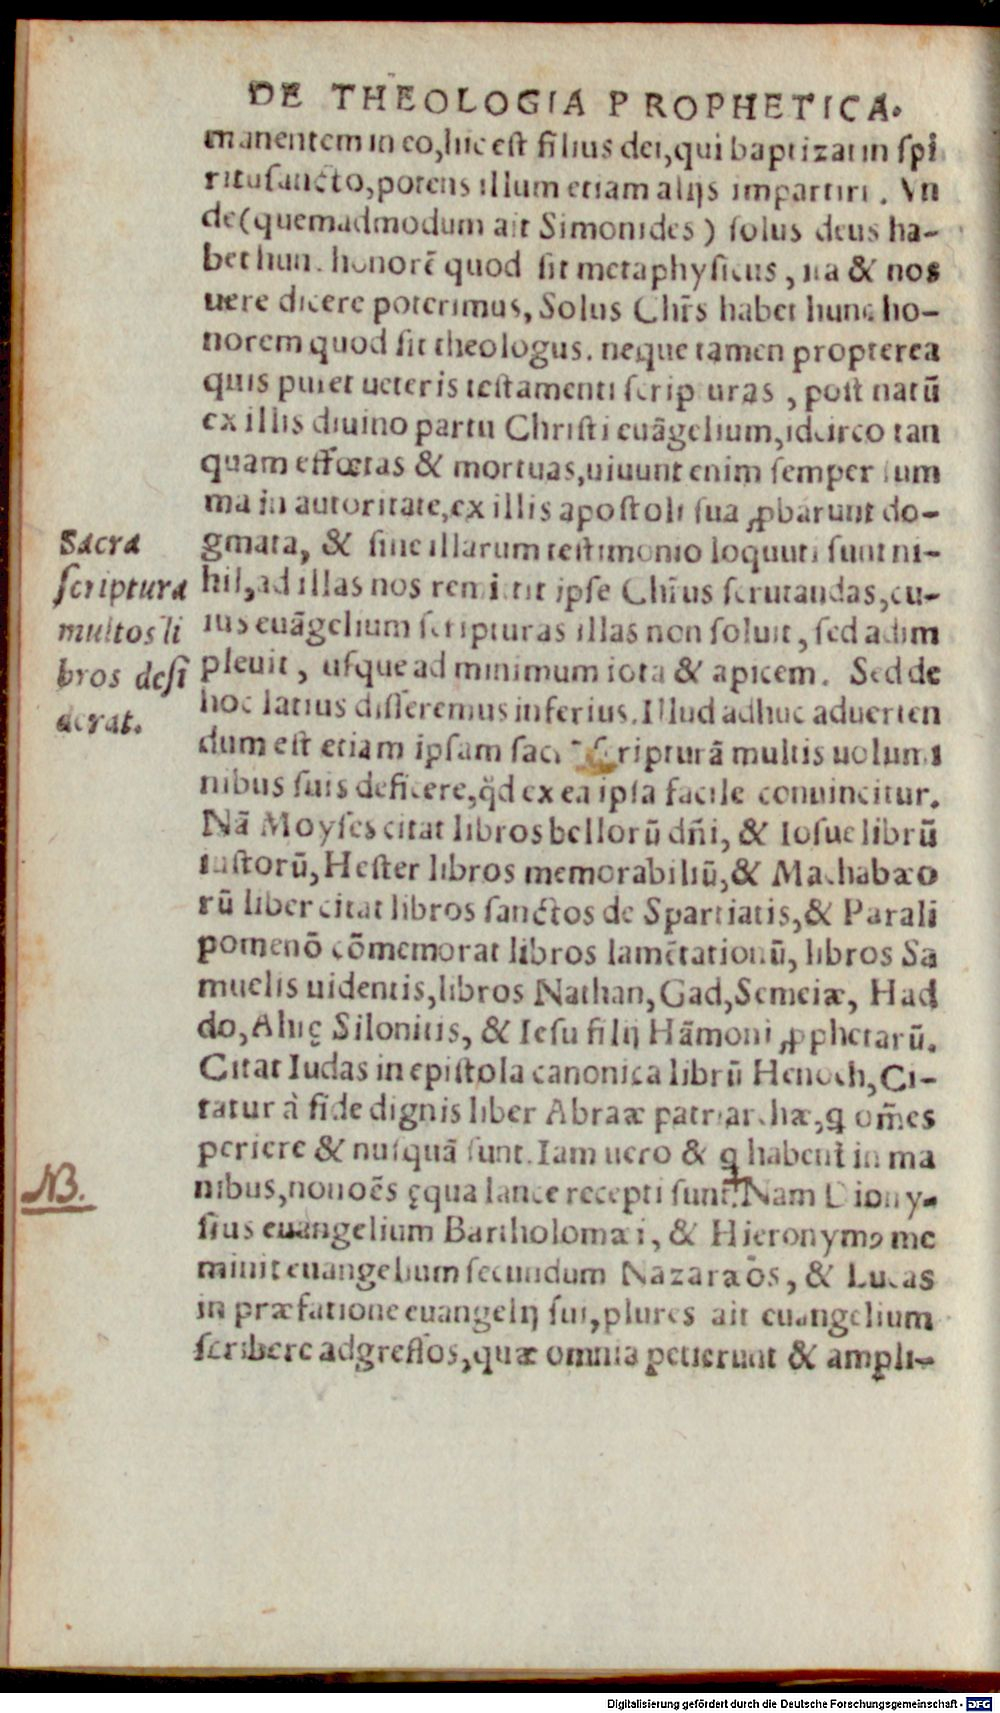 DE THEOLOGIA PROPHETICA.
manentem in eo, hic est filius dei, qui baptizat in spi
ritusancto, potens illum etiam alijs impartiri. Vn
de (quemadmodum ait Simonides) solus deus ha-
bet hunc honorē quod sit metaphysicus, ita & nos
uere dicere poterimus, Solus Chr̄s habet hunc ho-
norem quod sit theologus. neque tamen propterea
quis putet ueteris testamenti scripturas, post natū
ex illis diuino partu Christi euāgelium, idcirco tan
quam effœtas & mortuas, uiuunt enim semper sum
ma in autoritate, ex illis apostoli sua ꝓbarunt do-
gmata, & sine illarum testimonio loquuti sunt ni-
hil, ad illas nos remittit ipse Chr̄us scrutandas, cu-
ius euāgelium scripturas illas non soluit, sed adim
pleuit, usque ad minimum iota & apicem. Sed de
hoc latius disseremus inferius. Illud adhuc aduerten
dum est etiam ipsam sacrā scripturā multis uolumi
nibus suis deficere, qd̄ ex ea ipsa facile conuincitur.
Nā Moyses citat libros bellorū dn̄i, & Iosue librū
iustorū, Hester libros memorabiliū, & Machabæo
rū liber citat libros sanctos de Spartiatis, & Parali
pomenō cōmemorat libros lamētationū, libros Sa
muelis uidentis, libros Nathan, Gad, Semeiæ, Had
do, Ahię Silonitis, & Iesu filij Hāmoni ꝓphetarū.
Citat Iudas in epistola canonica librū Henoch, Ci-
tatur à fide dignis liber Abraæ patriarchæ, q om̄es
periere & nusquā sunt. Iam uero & q habent in ma
nibus, non oēs ęqua lance recepti sunt. Nam Diony-
sius euangelium Bartholomæi, & Hieronymo me
minit euangelium secundum Nazaræos, & Lucas
in præfatione euangelij sui, plures ait euangelium
scribere adgressos, quæ omnia petierunt & ampli-
Sacra
scriptura
multos li
bros desi
derat.
NB.
Digitalisierung gefördert durch die Deutsche Forschungsgemeinschaft - DFG